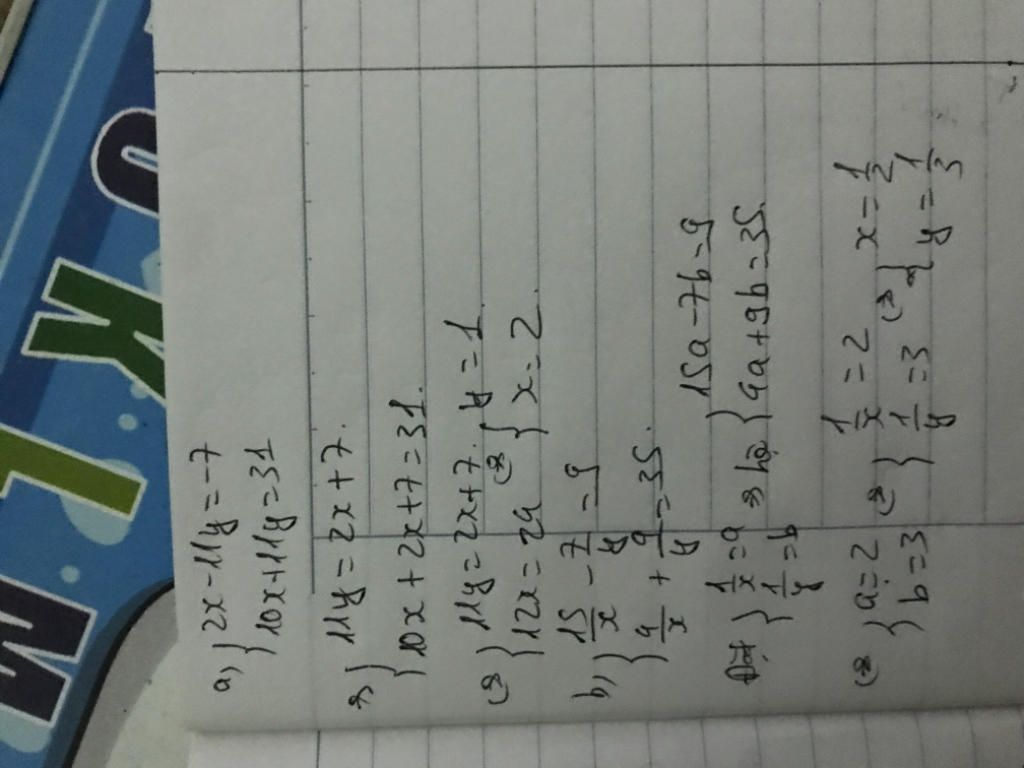 a, { 2x - 11y = -7
10x + 11y = 31
=> { 11y = 2x + 7.
10x + 2x + 7 = 31.
(=) { 11y = 2x + 7.
12x = 24 (=) { y = 1
x = 2.
b, { 15/x - 7/y = 9
4/x + 9/y = 35.
Đặt { 1/x = a
1/y = b => hệ { 15a - 7b = 9
4a + 9b = 35.
(=) { a = 2
b = 3 (=) { 1/x = 2
1/y = 3 (=) { x = 1/2
y = 1/3